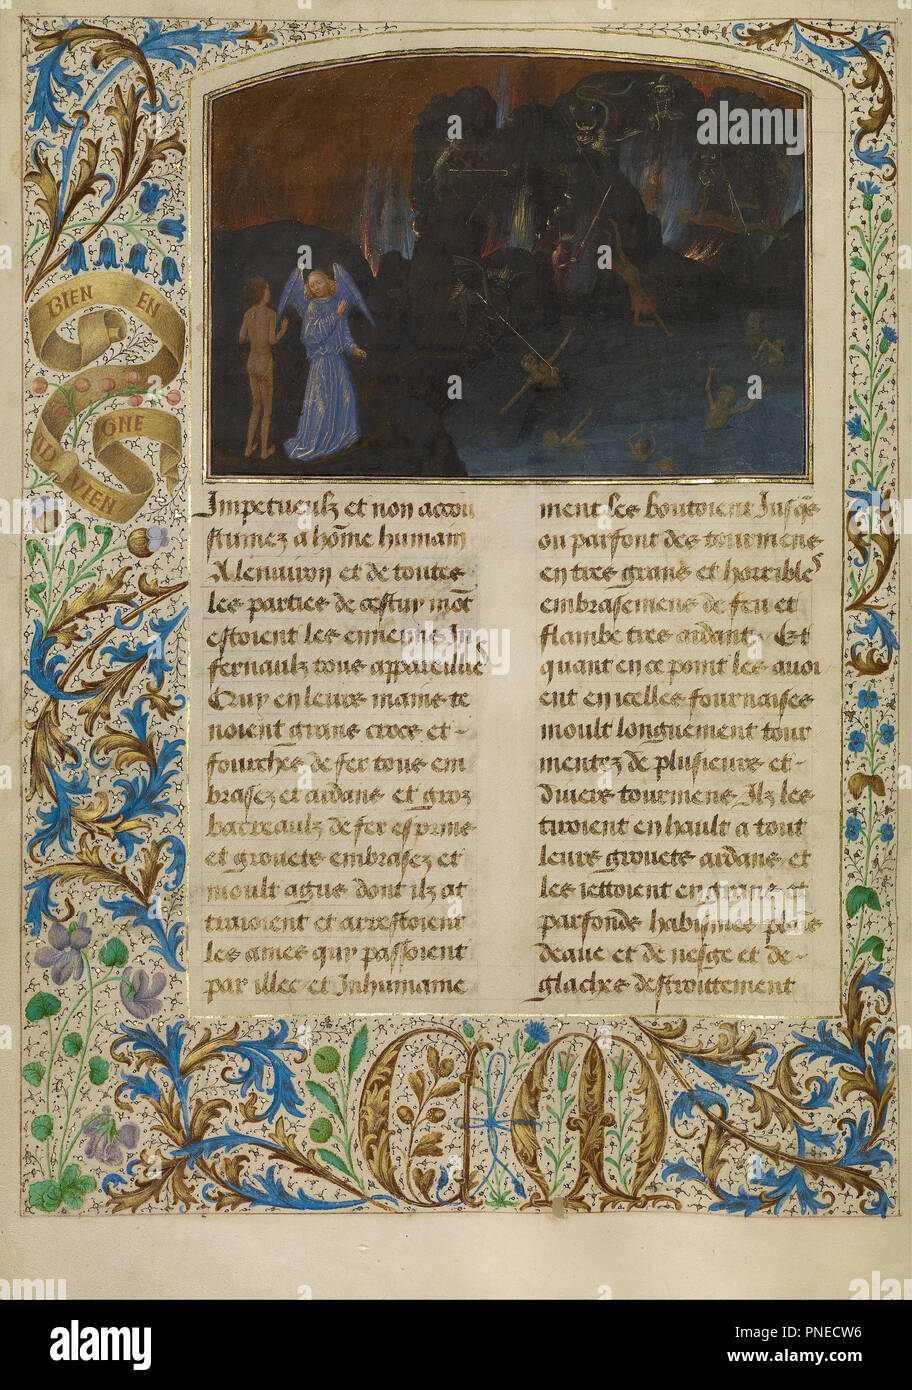 BIEN EN
GNE
VIEN
Impetueulz et non accou
stumez a ho͞me humain
A lenuiron et de toutes
les parties de cestuy mot
estoient les ennemis In
fernaulz tous appareillie
Quy en leurs mains te
noient grans crocs et
fourches de fer tous em
brasez et ardans et groz
barreaulz de fer esprins
et grouets embrasez et
moult agus dont ilz at
traioient et arrestoient
les ames quy passoient
par illec et Inhumaine
ment les boutoient Jusqs
ou parfont des tourmens
en tres grans et horribles
embrasemens de feu et
flambe tres ardant Et
quant en ce point les auoi
ent en icelles fournaises
moult longuement tour
mentez de plusieurs et
diuers tourmens Ilz les
tiroient en hault a tout
leurs grouets ardans et
les iettoient en grans et
parfonds habismes plains
deaue et de nesge et de
glaches destroittement
CM
alamy
Image ID: PNECW6
www.alamy.com